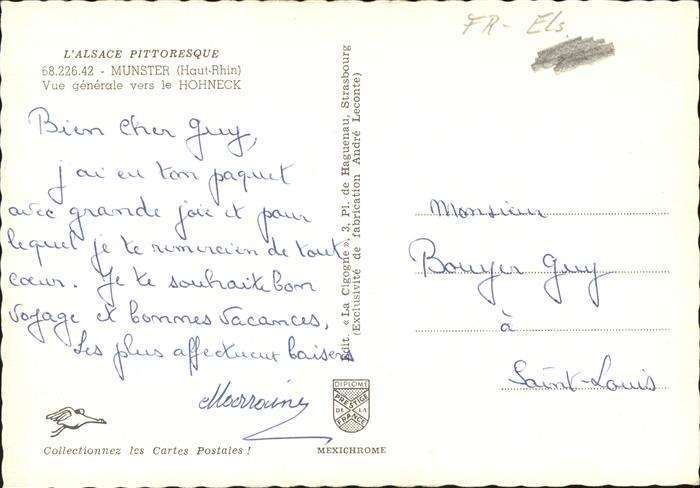 FR- Els.
L'ALSACE PITTORESQUE
68.226.42 - MUNSTER (Haut-Rhin)
Vue générale vers le HOHNECK
Bien cher Guy,
j'ai eu ton paquet
avec grande joie et pour
lequel je te remercien de tout
coeur. Je te souhaite bon
voyage et bonnes vacances,
Les plus affectueux baisers
Marraine
Collectionnez les Cartes Postales !
Edit. « La Cigogne », 3, Pl. de Haguenau, Strasbourg
(Exclusivité de fabrication André Leconte)
DIPLOME
PRESTIGE
DE LA
FRANCE
MEXICHROME
Monsieur
Bouyer Guy
à
Saint-Louis